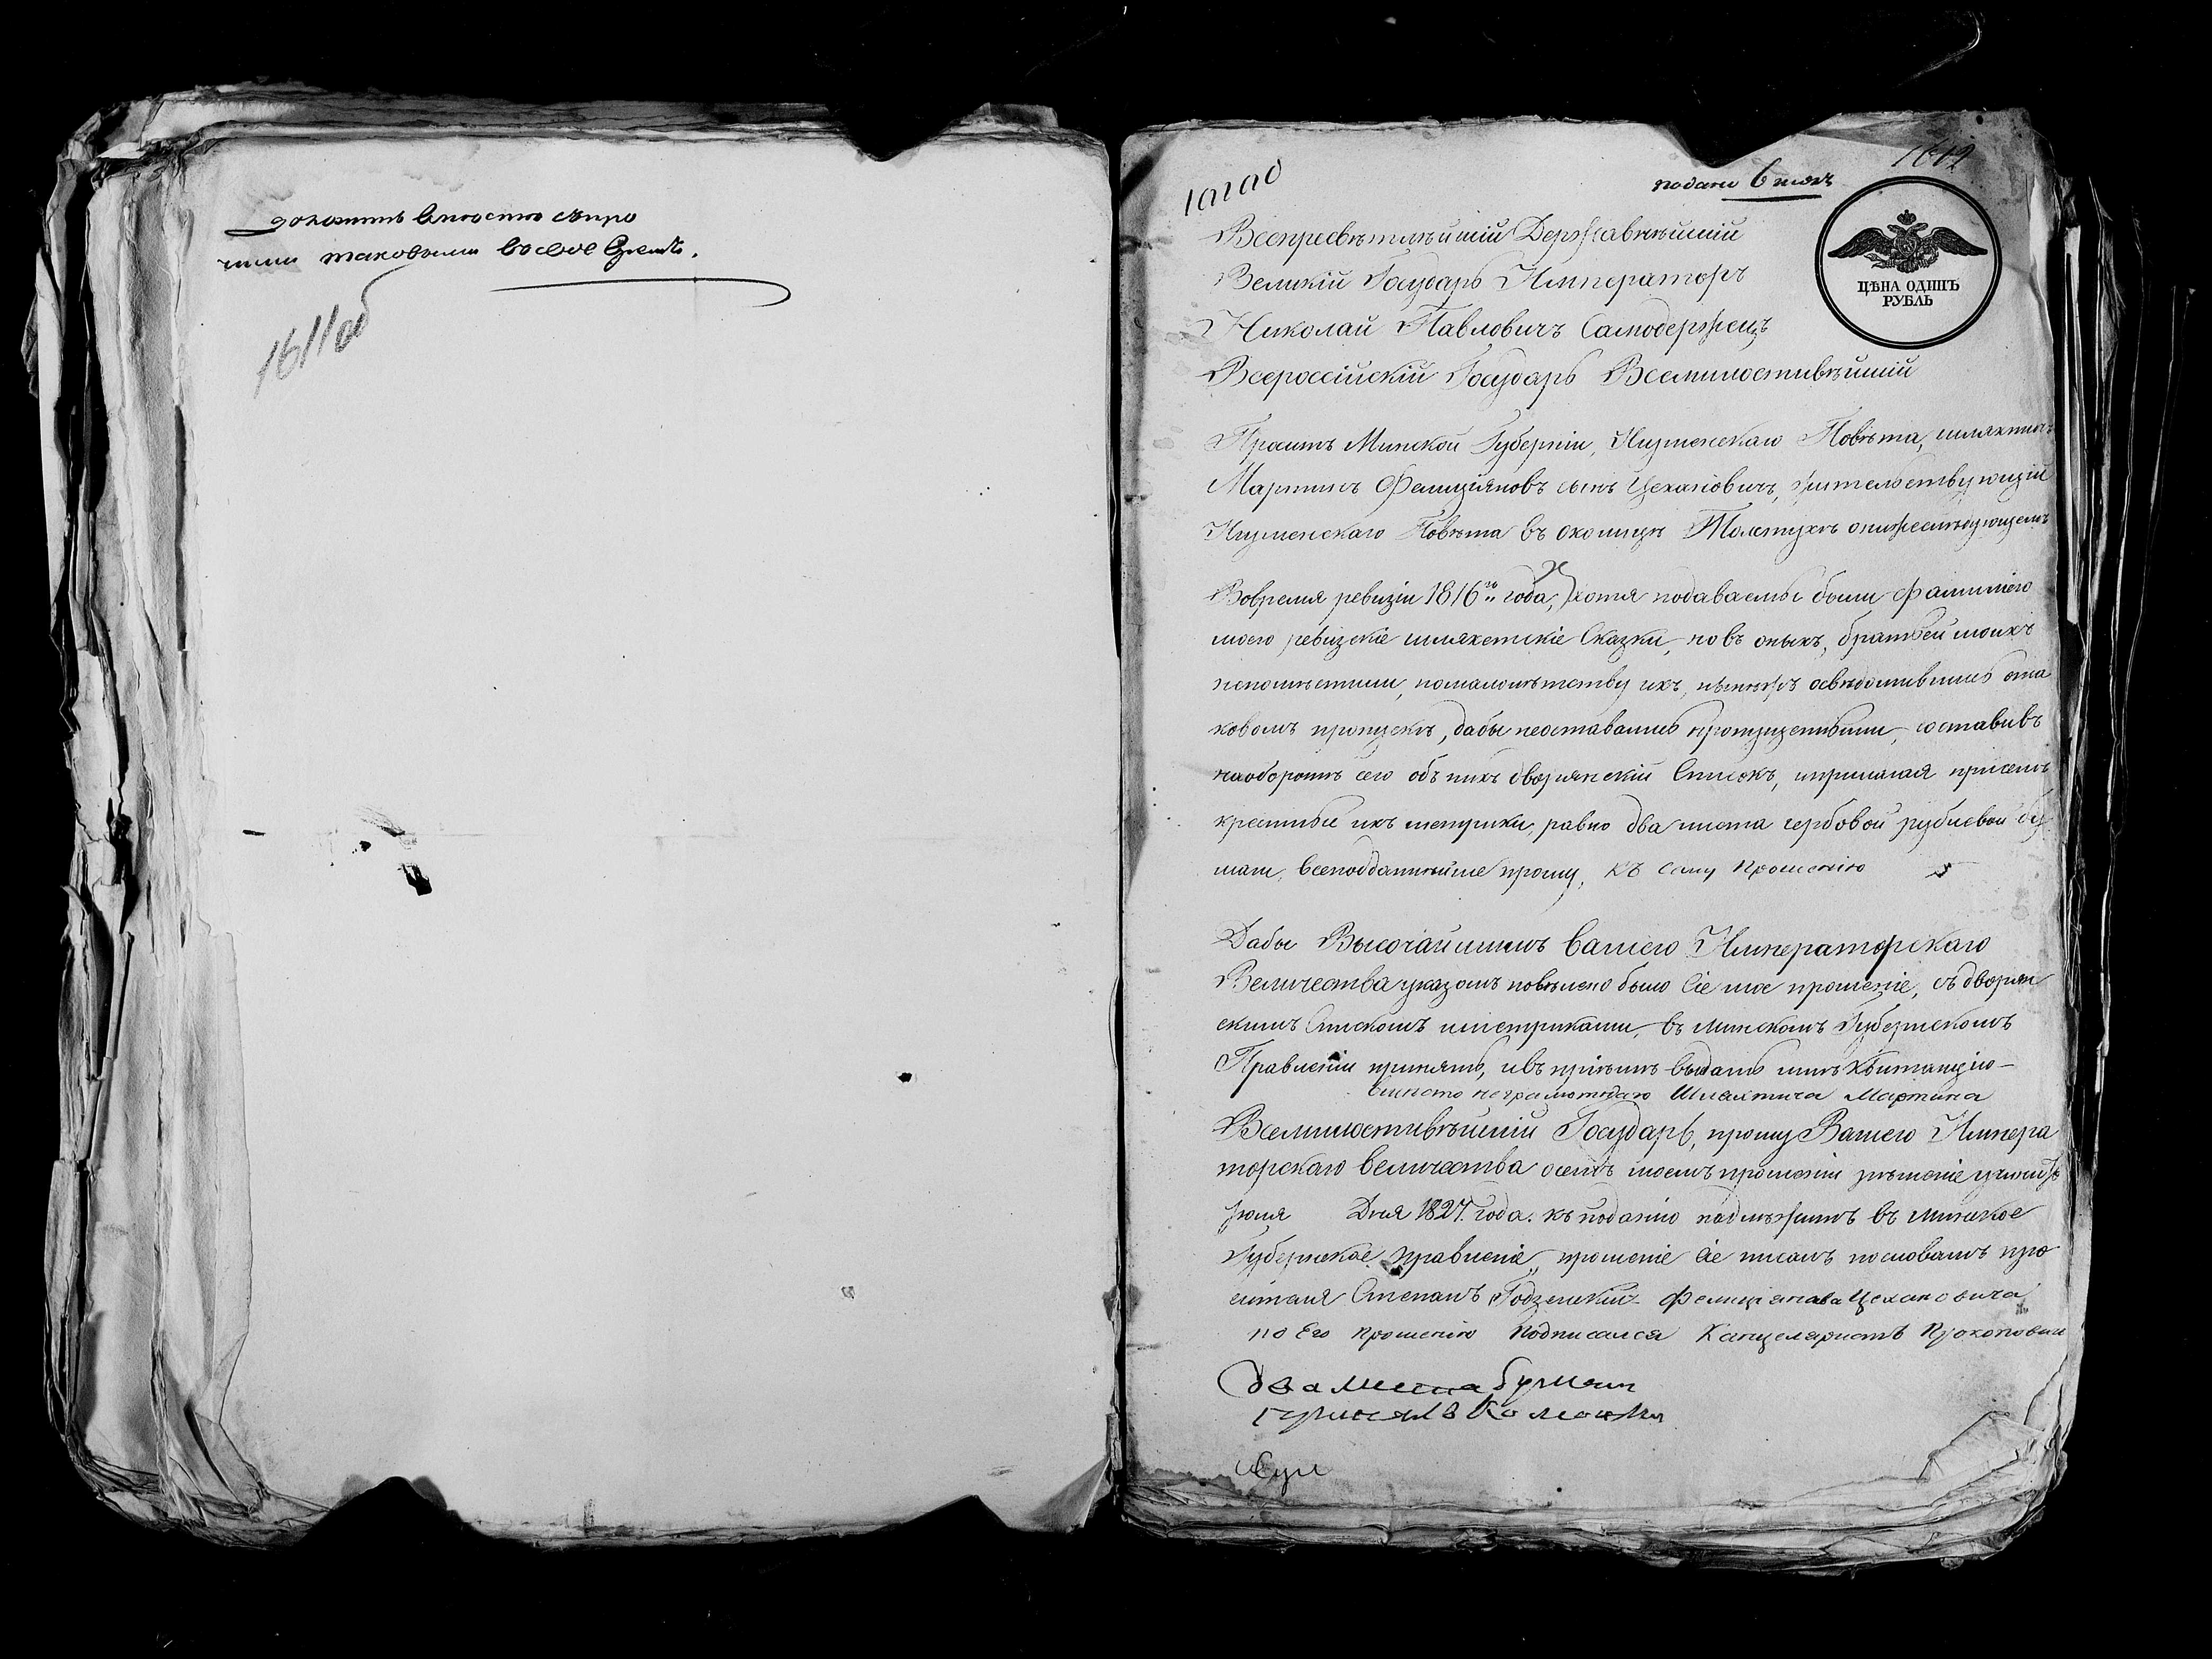 доложить вместе съ про
чими таковыми во свое время.
1611 об
подано 6 июля
1612
ЦѢНА ОДИНЪ
РУБЛЬ
Всепресвѣтлѣйшій Державнѣйшій
Великій Государь Императоръ
Николай Павловичъ Самодержецъ
Всероссійскій Государь Всемилостивѣйшій
Проситъ Минской Губерніи, Игуменскаго Повѣта, шляхтичъ
Мартинъ Фелиціяновъ сынъ Цехановичъ, жительствующій
Игуменскаго Повѣта въ околицѣ онижеслѣдующемъ
Вовремя ревизіи 1816го года, хотя подаваемы были Фамиліею
моею ревизскіе шляхетскіе Сказки, но въ оныхъ, братьей моихъ
непомѣстили, помалолѣтству ихъ, освѣдомившись ота
ковомъ пропускѣ, дабы неоставались пропущенными, составивъ
наоборотѣ сего объ нихъ дворянскій Списокъ, иприлагая присемъ
крестные ихъ метрики, равно два листа гербовой рублевой бу
маги, всеподданнѣйше прошу, къ сему прошенію
Дабы Высочайшимъ вашего Императорскаго
Величества указомъ повѣлено было Сіе мое прошеніе, съ дворян
скимъ Спискомъ иметриками, въ Минскомъ Губернскомъ
Правленіи принять, ивъ пріемѣ выдать мнѣ Квитанцію—
вмѣсто неграмотнаго Шляхтича Мартина
Всемилостивѣйшій Государь, прошу Вашего Импера
торскаго величества осемъ моемъ прошеніи рѣшеніе учинить
Іюля Дня 1827. года. къ поданію надлѣжитъ въ минское
Губернское правленіе, прошеніе Сіе писалъ пословамъ про
сителя Степанъ Годзецкій Фелиціанова Цехановича
по Его прошенію подписался Канцеляристъ Прокоповичъ
два листа бумаги